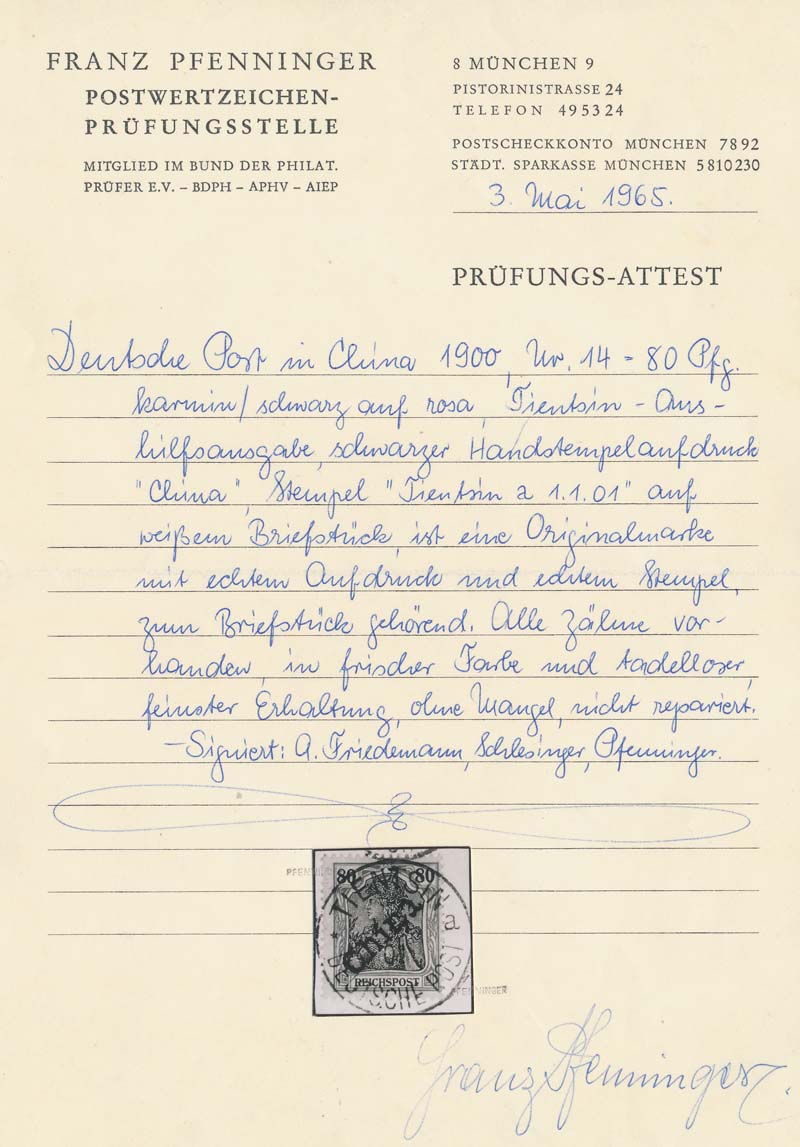 FRANZ PFENNINGER
POSTWERTZEICHEN-
PRÜFUNGSSTELLE
MITGLIED IM BUND DER PHILAT.
PRÜFER E.V. – BDPH – APHV – AIEP
8 MÜNCHEN 9
PISTORINISTRASSE 24
TELEFON 495324
POSTSCHECKKONTO MÜNCHEN 7892
STÄDT. SPARKASSE MÜNCHEN 5810230
3. Mai 1965.
PRÜFUNGS-ATTEST
Deutsche Post in China 1900, Nr. 14 - 80 Pfg.
karmin/schwarz auf rosa, Tientsin - Aus-
hilfsausgabe, schwarzer Handstempelaufdruck
"China", Stempel "Tientsin a 1.1.01" auf
weißem Briefstück, ist eine Originalmarke
mit echtem Aufdruck und echtem Stempel,
zum Briefstück gehörend. Alle Zähne vor-
handen, in frischer Farbe und tadelloser,
feinster Erhaltung, ohne Mangel, nicht repariert.
– Signiert: A. Friedemann, Schlesinger, Pfenninger.
PFENNINGER
80 80
TIENTSIN
a
China
REICHSPOST
DEUTSCHE POST
PFENNINGER
Franz Pfenninger.